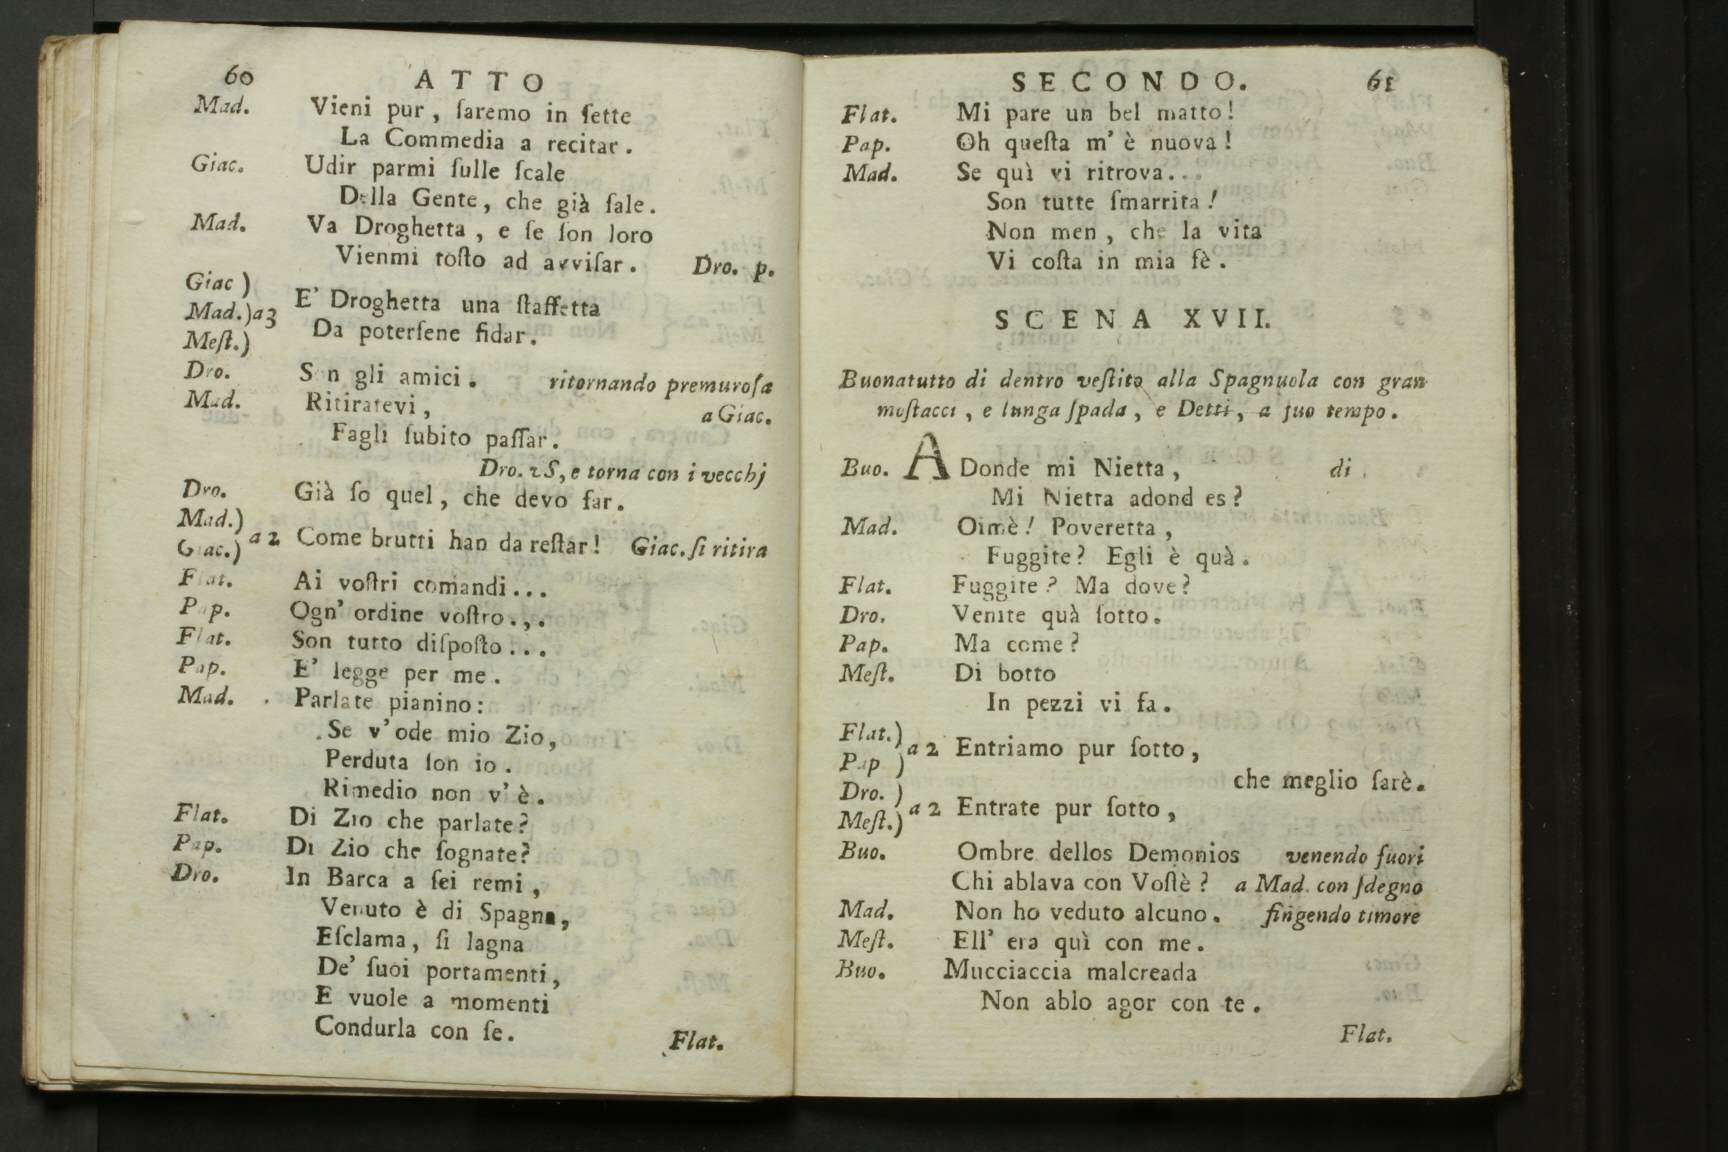 60 ATTO
Mad. Vieni pur, ſaremo in ſette
La Commedia a recitar.
Giac. Udir parmi ſulle ſcale
Della Gente, che già ſale.
Mad. Va Droghetta, e ſe ſon loro
Vienmi toſto ad avviſar. Dro. p.
Giac )
Mad.)a3 E' Droghetta una ſtaffetta
Meſt.) Da poterſene fidar.
Dro. Son gli amici. ritornando premuroſa
Mad. Ritiratevi, a Giac.
Fagli ſubito paſſar.
Dro. và, e torna con i vecchj
Dro. Già ſo quel, che devo far.
Mad.)
Giac.) a 2 Come brutti han da reſtar! Giac. ſi ritira
Flat. Ai voſtri comandi...
Pap. Ogn' ordine voſtro.,.
Flat. Son tutto diſpoſto...
Pap. E' legge per me.
Mad. Parlate pianino:
Se v'ode mio Zio,
Perduta ſon io.
Rimedio non v'è.
Flat. Di Zio che parlate?
Pap. Di Zio che ſognate?
Dro. In Barca a ſei remi,
Venuto è di Spagna,
Eſclama, ſi lagna
De' ſuoi portamenti,
E vuole a momenti
Condurla con ſe.
Flat.
SECONDO. 61
Flat. Mi pare un bel matto!
Pap. Oh queſta m'è nuova!
Mad. Se quì vi ritrova...
Son tutte ſmarrita!
Non men, che la vita
Vi coſta in mia fè.
SCENA XVII.
Buonatutto di dentro veſtito alla Spagnuola con gran
moſtacci, e lunga ſpada, e Detti, a ſuo tempo.
Buo. ADonde mi Nietta, di
Mi Nietta adond es?
Mad. Oimè! Poveretta,
Fuggite? Egli è quà.
Flat. Fuggite? Ma dove?
Dro. Venite quà ſotto.
Pap. Ma come?
Meſt. Di botto
In pezzi vi fa.
Flat.)
Pap ) a 2 Entriamo pur ſotto,
che meglio ſarè.
Dro. )
Meſt.) a 2 Entrate pur ſotto,
Buo. Ombre dellos Demonios venendo fuori
Chi ablava con Voſtè? a Mad. con ſdegno
Mad. Non ho veduto alcuno. fingendo timore
Meſt. Ell' era quì con me.
Buo. Mucciaccia malcreada
Non ablo agor con te.
Flat.